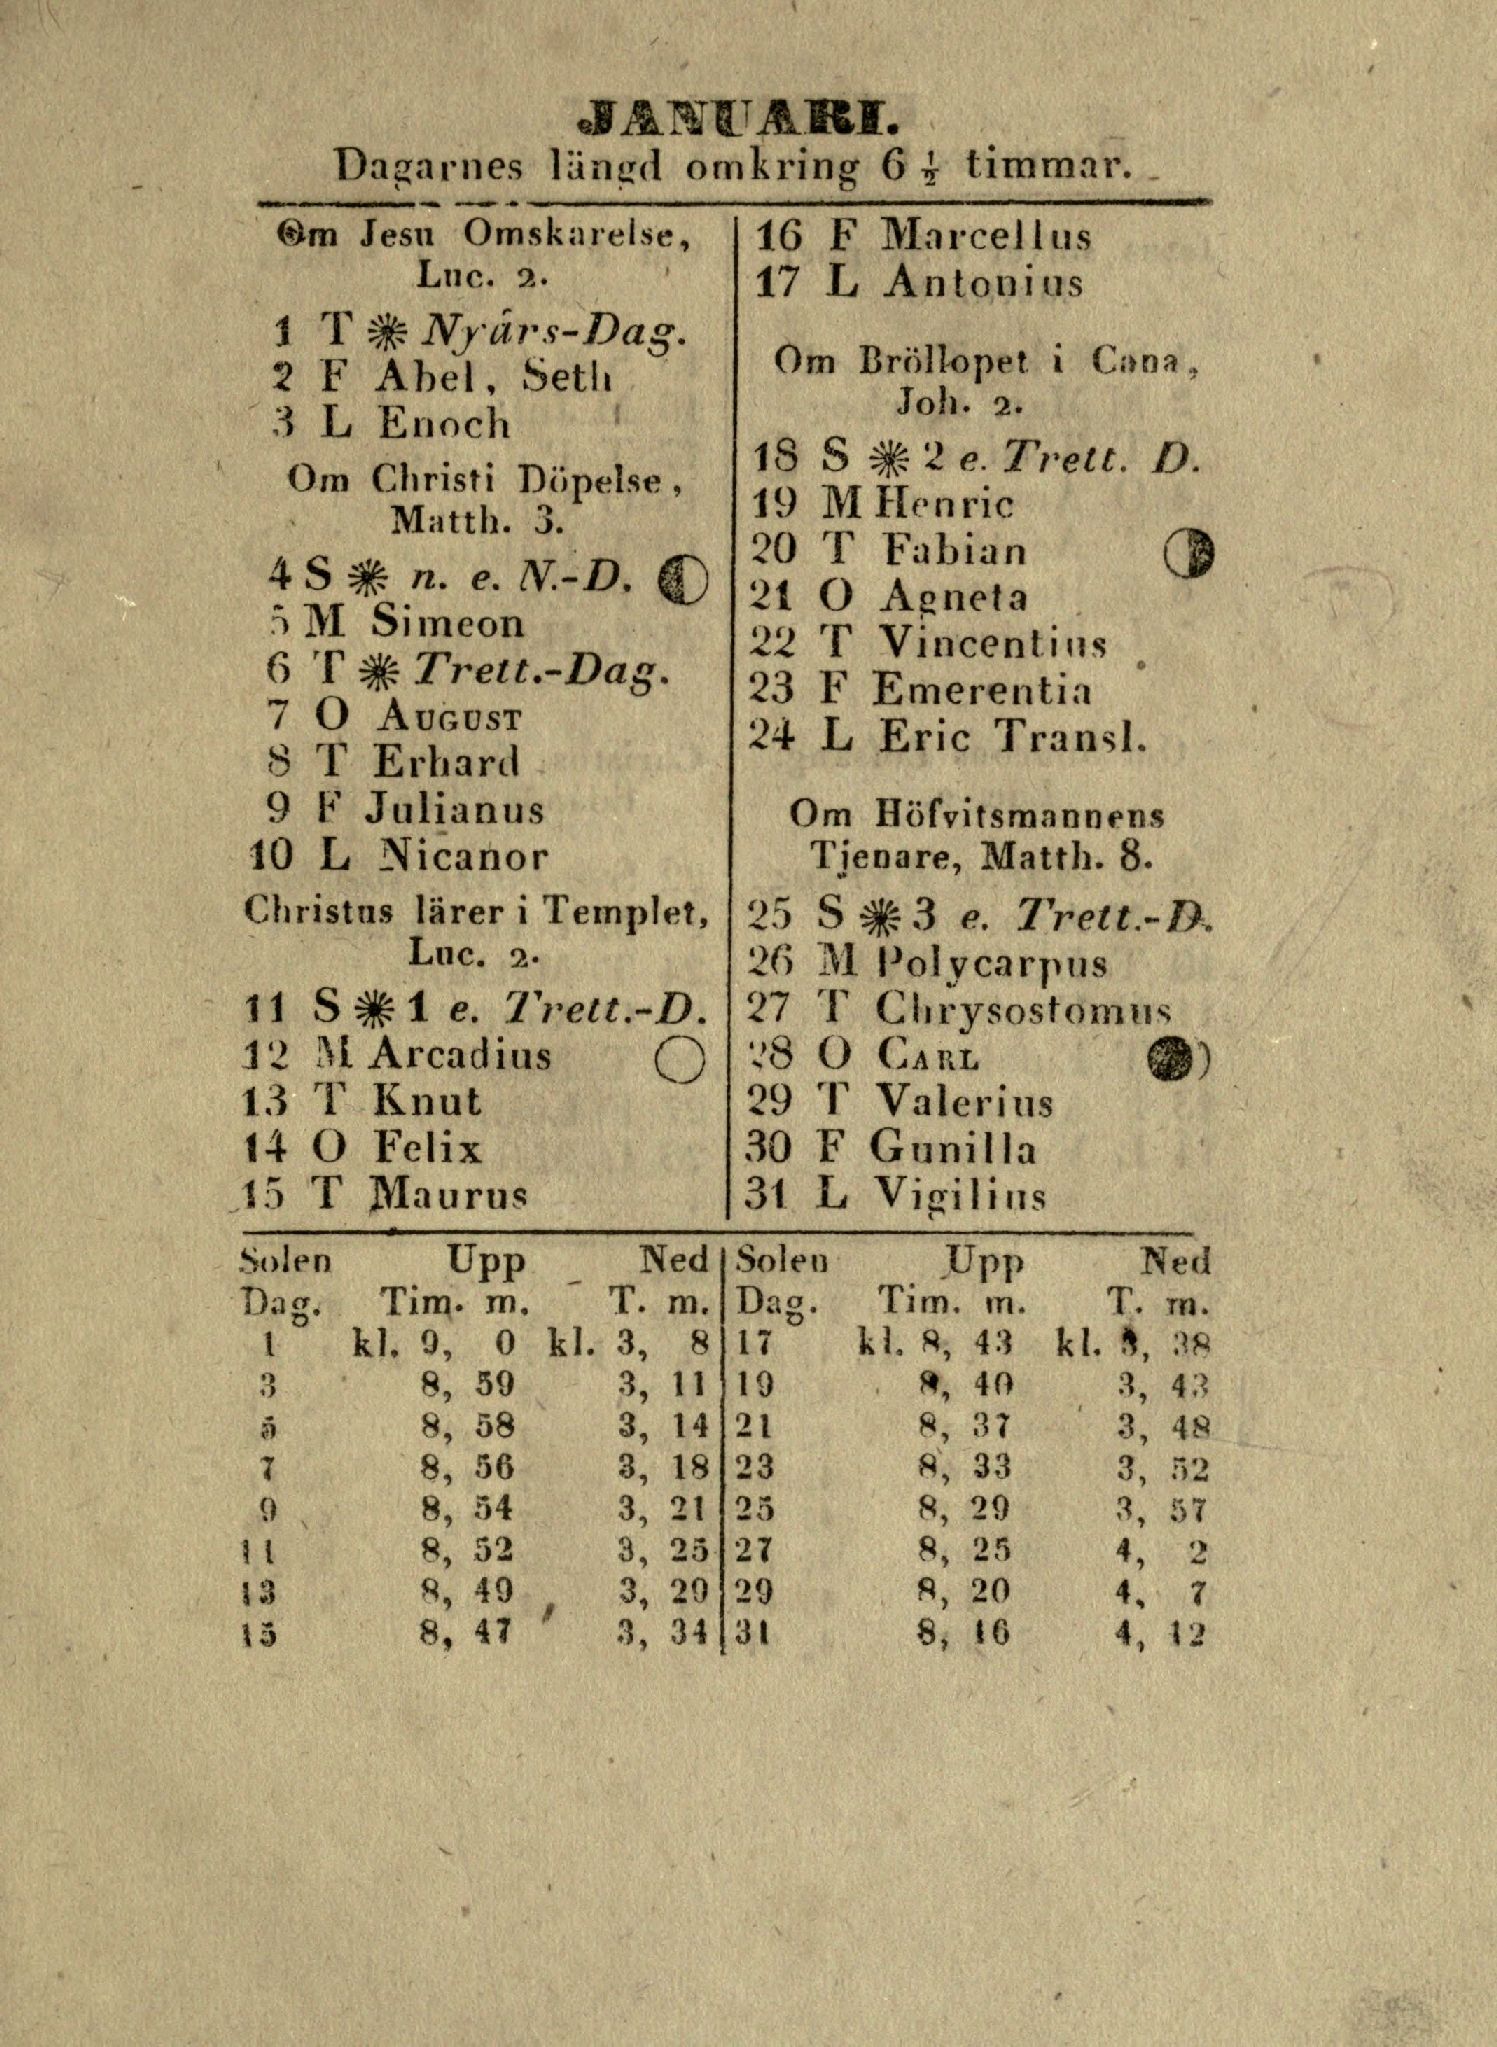 JANUARI.
Dagarnes längd omkring 6 ½ timmar.
Om Jesu Omskärelse,
Luc. 2.
1 T Nyårs-Dag.
2 F Abel, Seth
3 L Enoch
Om Christi Döpelse,
Matth. 3.
4 S n. e. N.-D.
5 M Simeon
6 T Trett.-Dag.
7 O AUGUST
8 T Erhard
9 F Julianus
10 L Nicanor
Christus lärer i Templet,
Luc. 2.
11 S 1 e. Trett.-D.
12 M Arcadius
13 T Knut
14 O Felix
15 T Maurus
16 F Marcellus
17 L Antonius
Om Bröllopet i Cana,
Joh. 2.
18 S 2 e. Trett. D.
19 M Henric
20 T Fabian
21 O Agneta
22 T Vincentius
23 F Emerentia
24 L Eric Transl.
Om Höfvitsmannens
Tjenare, Matth. 8.
25 S 3 e. Trett.-D.
26 M Polycarpus
27 T Chrysostomus
28 O CARL
29 T Valerius
30 F Gunilla
31 L Vigilius
Solen Upp Ned
Dag. Tim. m. T. m.
1 kl. 9, 0 kl. 3, 8
3 8, 59 3, 11
5 8, 58 3, 14
7 8, 56 3, 18
9 8, 54 3, 21
11 8, 52 3, 25
13 8, 49 3, 29
15 8, 47 3, 34
Solen Upp Ned
Dag. Tim. m. T. m.
17 kl. 8, 43 kl. 3, 38
19 8, 40 3, 43
21 8, 37 3, 48
23 8, 33 3, 52
25 8, 29 3, 57
27 8, 25 4, 2
29 8, 20 4, 7
31 8, 16 4, 12